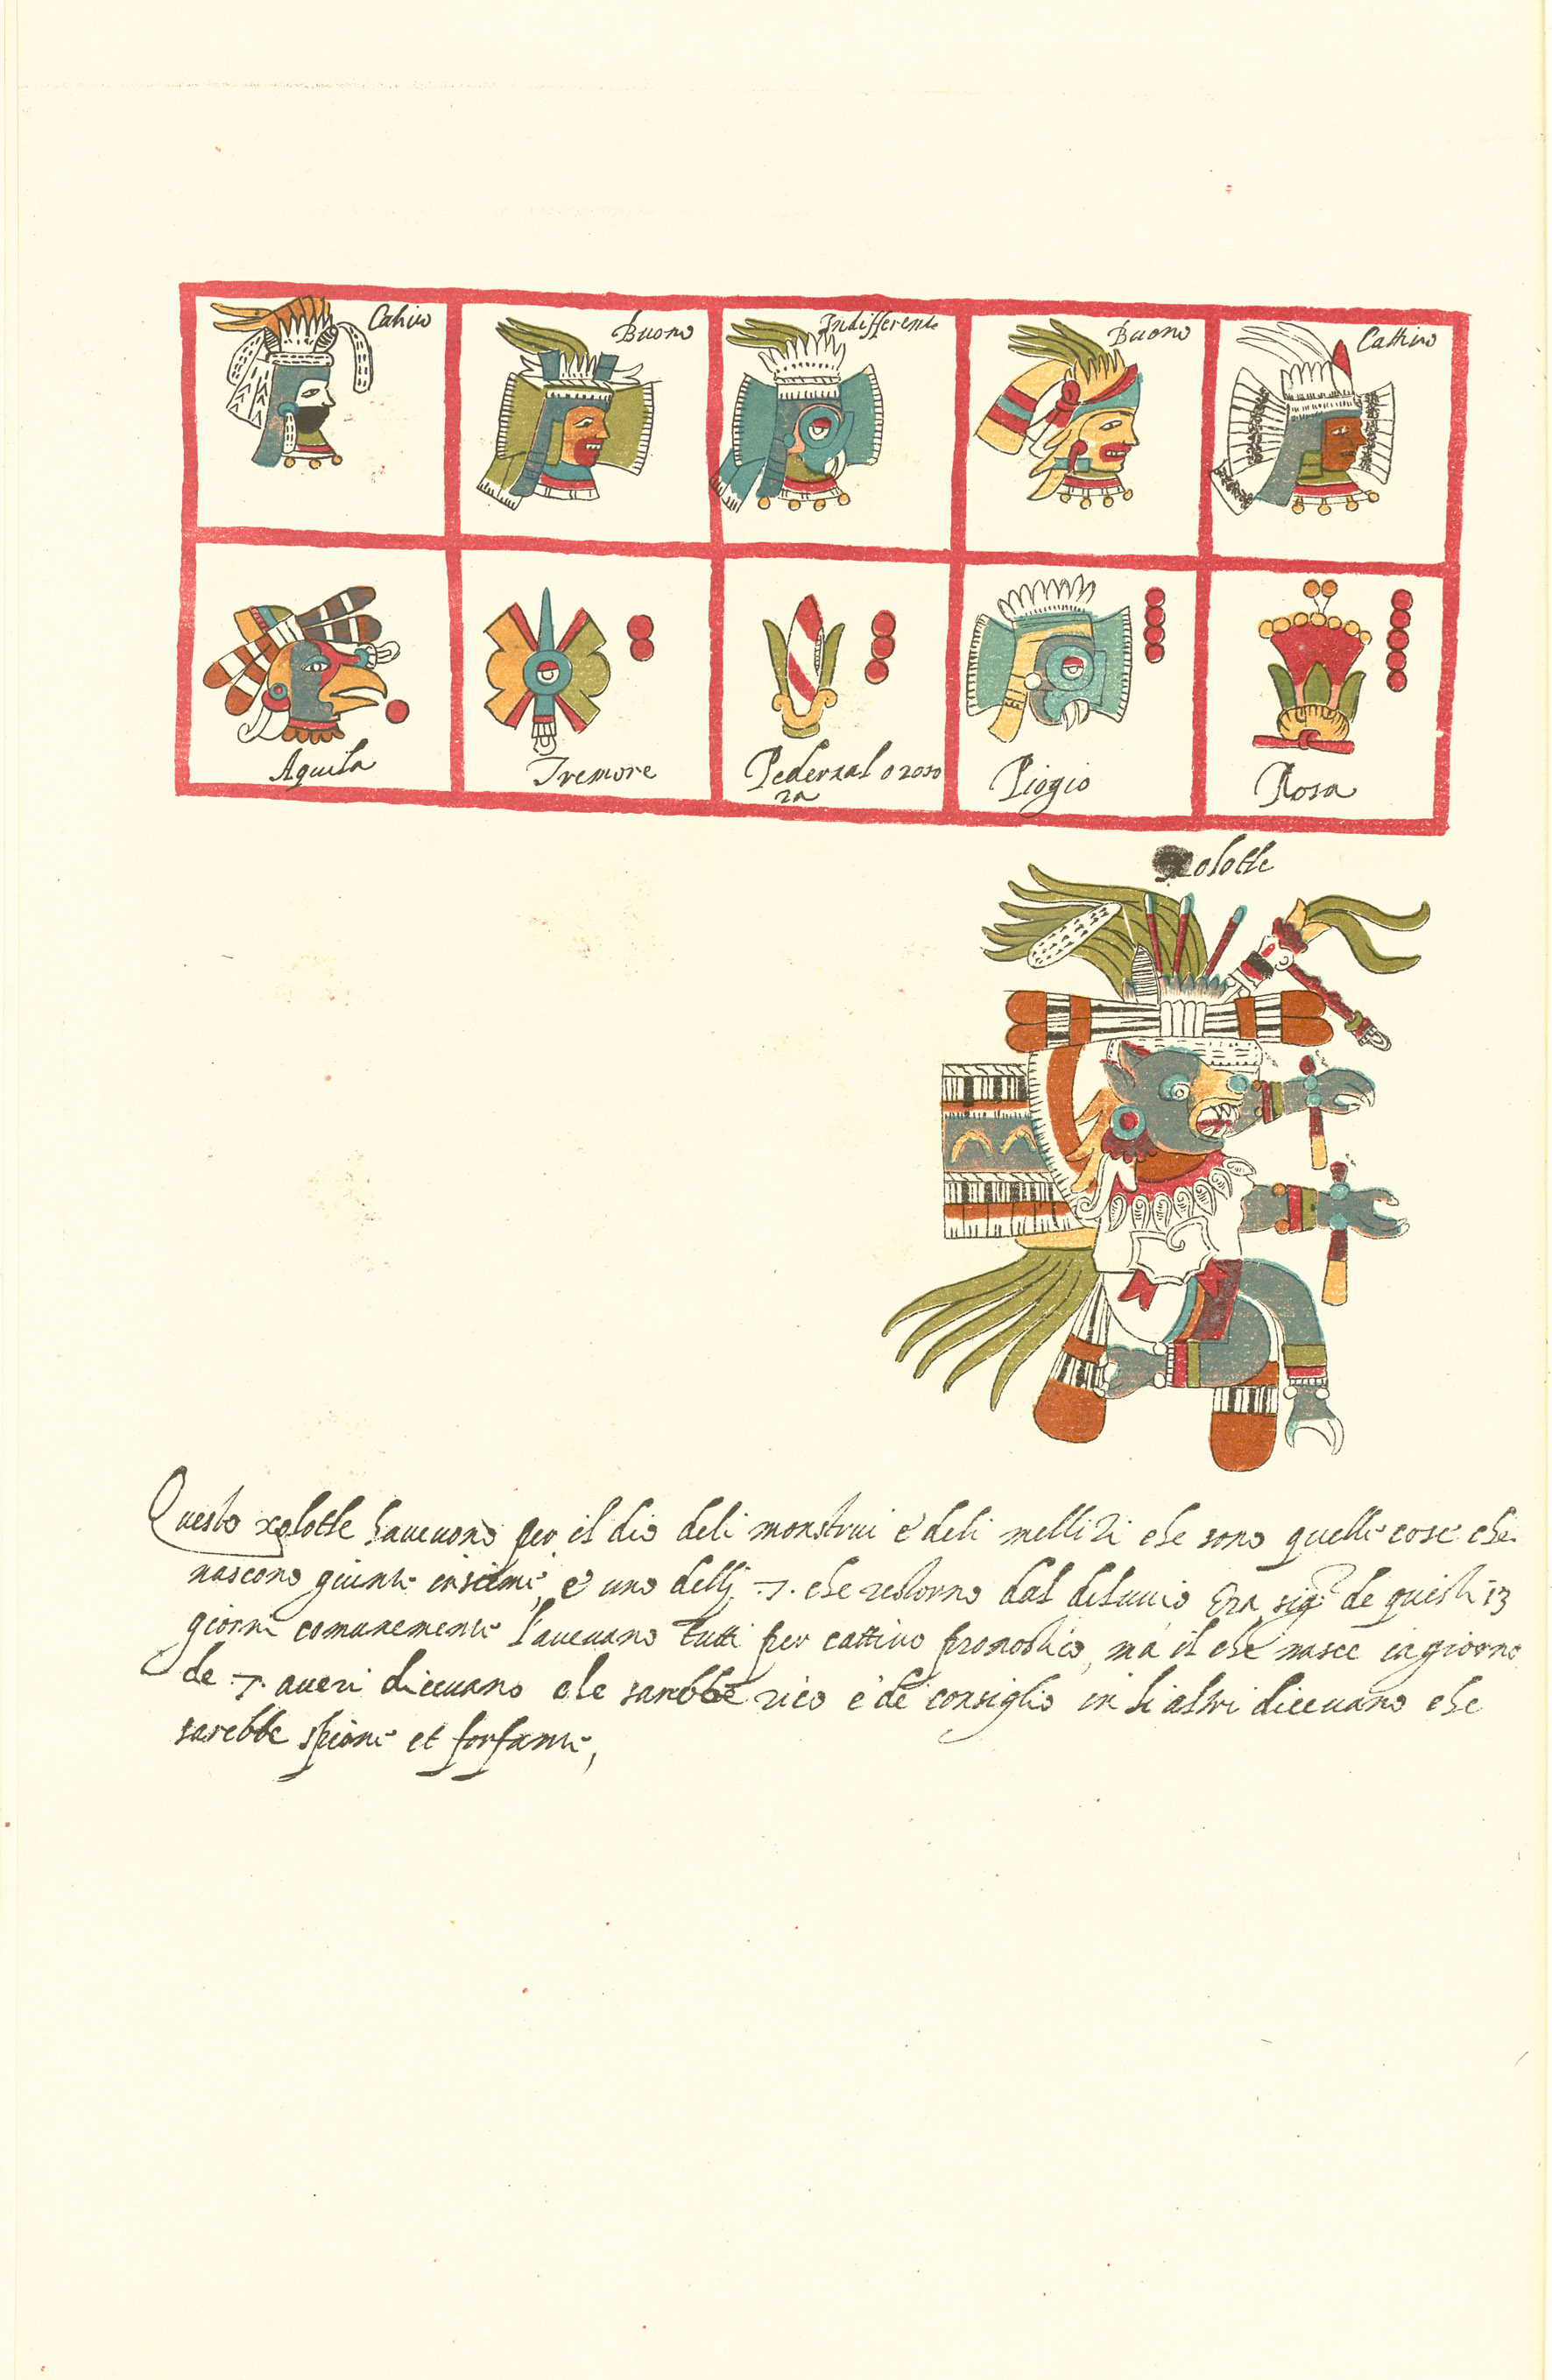 Cativo
Buono
Indifferente
Buono
Cattivo
Aquila
Tremore
Pedernal o roso
ra
Piogia
Rosa
xolotle
Questo xolotle havevono per il dio deli monstrui e deli mellizi che sono quelle cose che
nascono giunte insieme, e uno delli .7. che restorno dal diluvio Era sig.r de questi 13
giorni comunemente l'avevano tutti per cattivo pronostico, ma il che nasce in giorno
de .7. averi dicevano che sarebbe rico e de consiglio in li altri dicevano che
sarebbe spione et forfante,